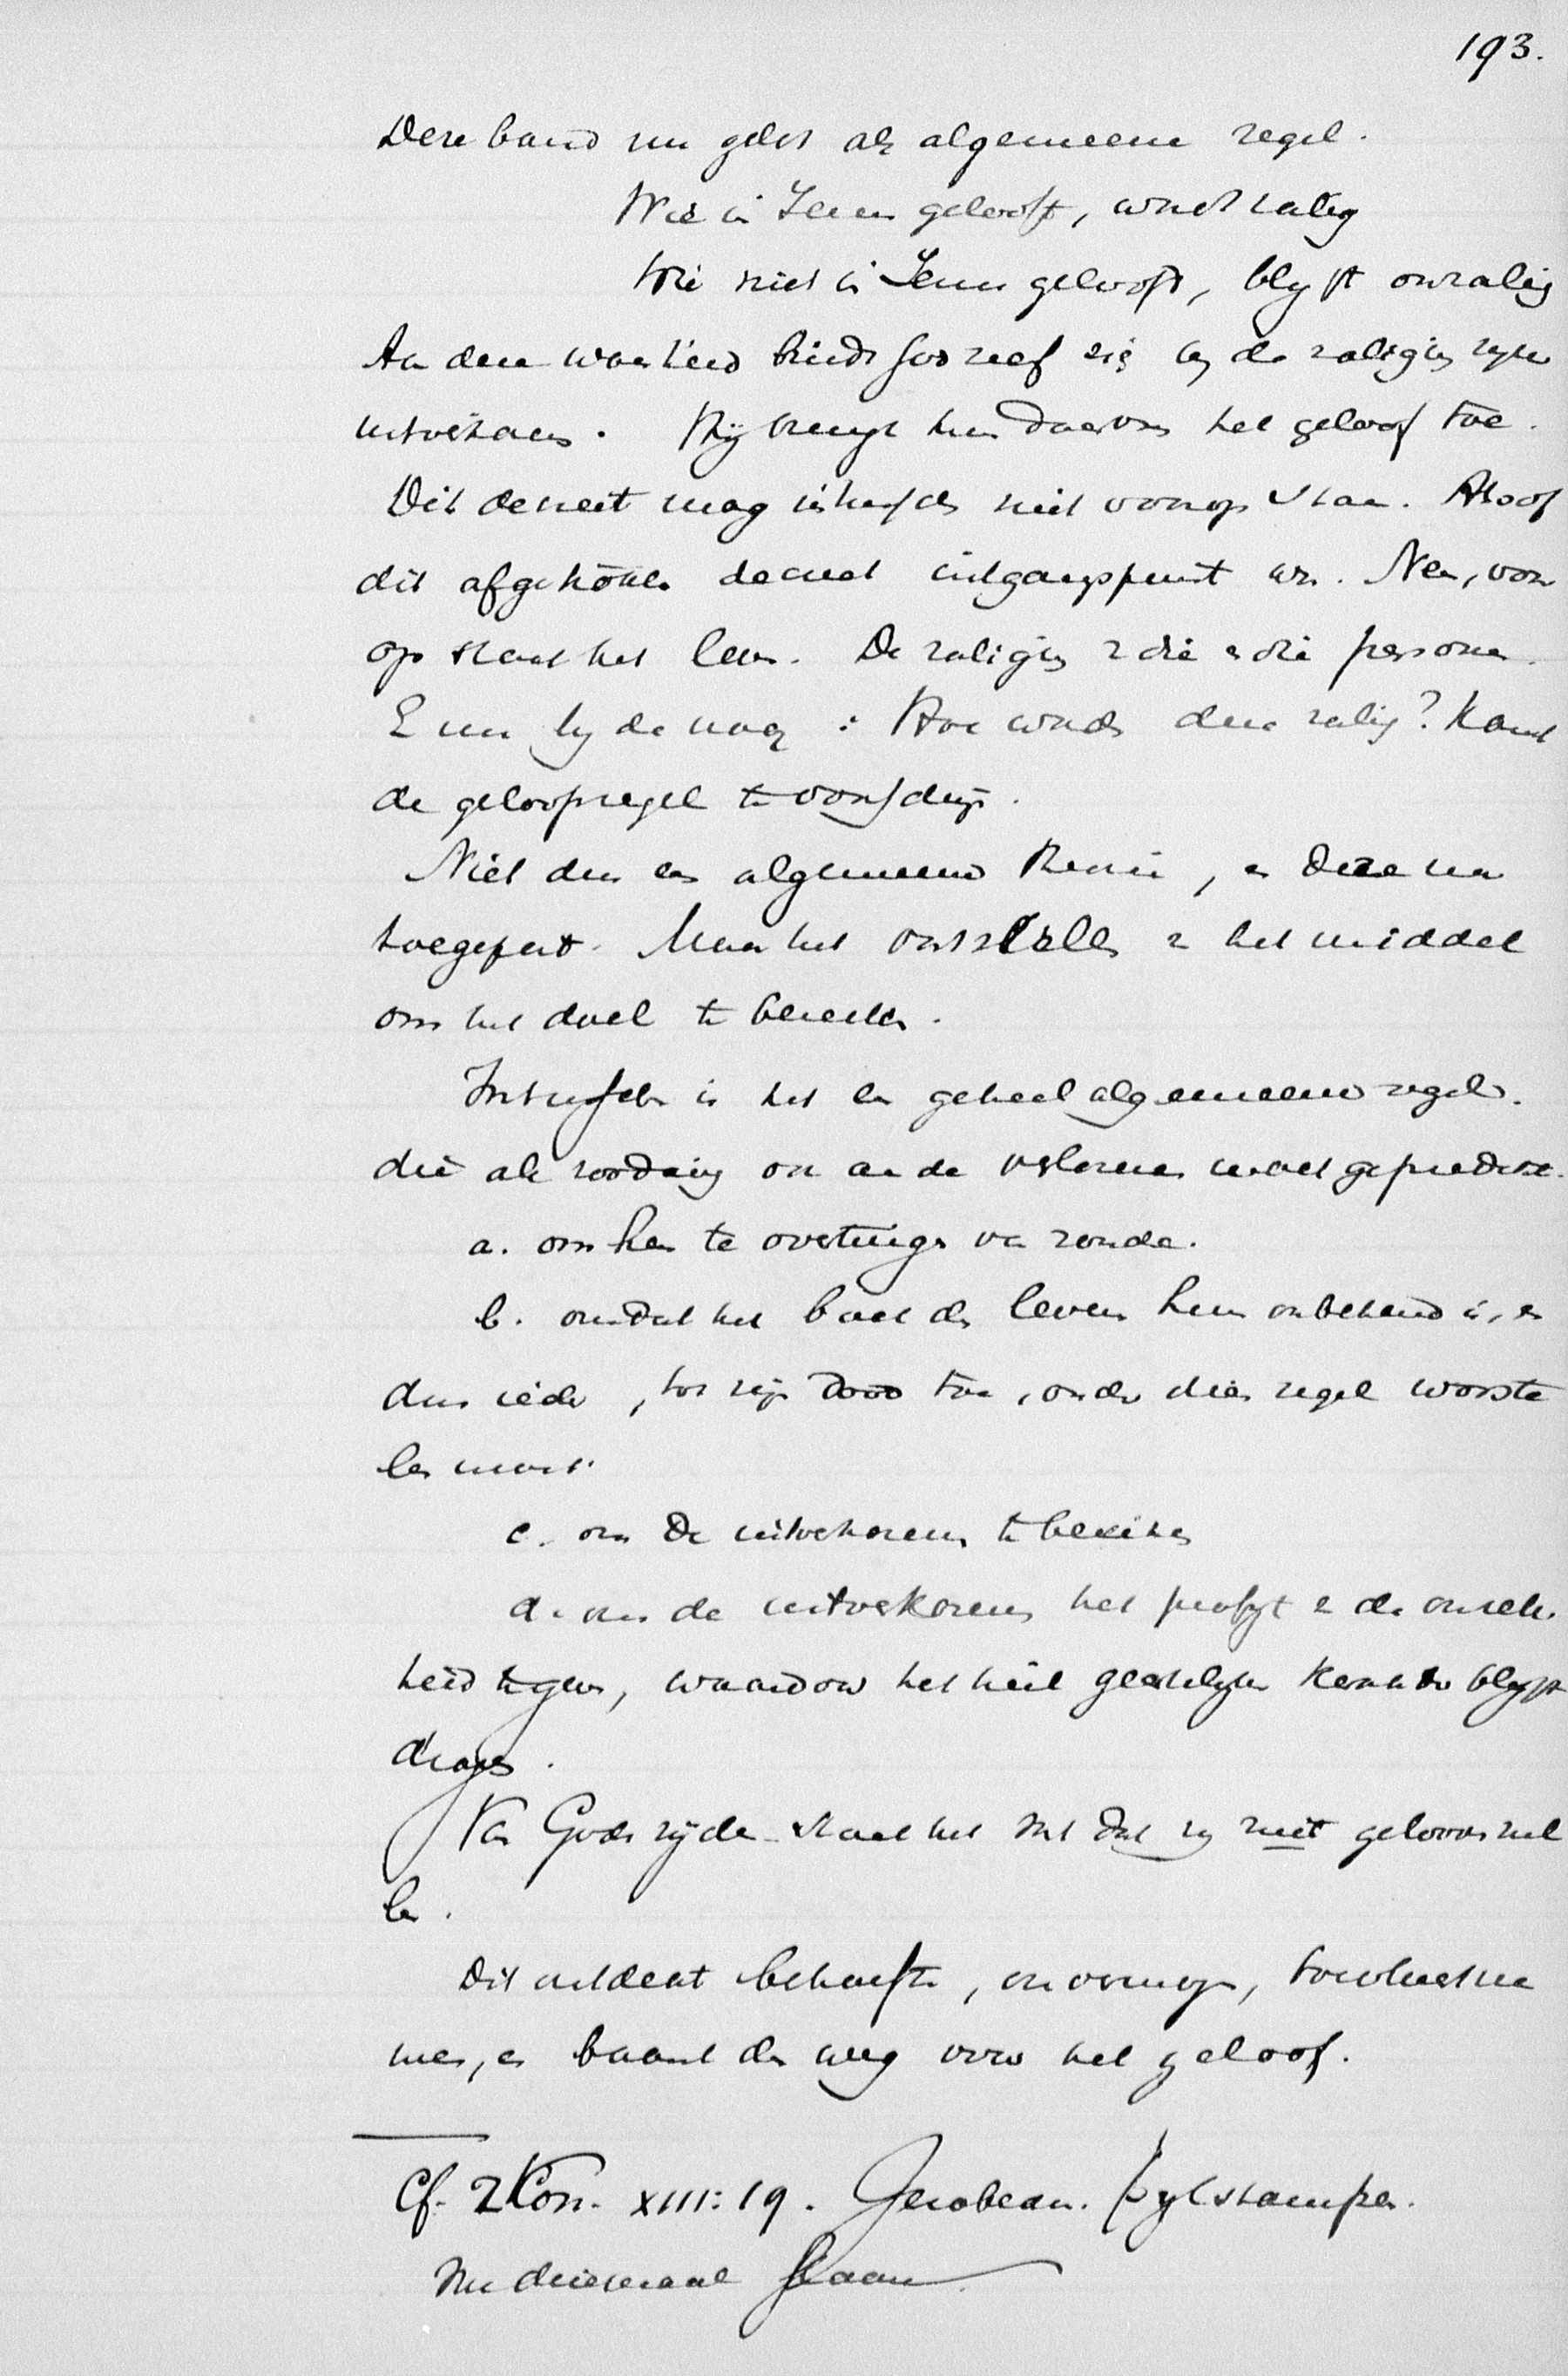 193.
Deze band nu geldt als algemeene regel.
Wie in Jezus gelooft, wordt zalig
Wie niet in Jezus gelooft, blyft onzalig
Aan deze waarheid bindt God zelf zig by de zaliging zyner
uitverkoren. Hij brengt hen daarom het geloof toe.
Dit decreet mag intusschen niet voorop staan. Alsof
dit afgetrokken decreet uitgangspunt was. Neen, voor
op staat het leven. De zaliging v die en die personen.
En nu by de vraag : Hoe wordt deze zalig? Komt
de geloofsregel te voorschijn.
Niet dus een algemeene Theorie, en deze nu
toegepast. Maar het voorstellen v het middel
om het doel te bereiken.
Intusschen is het een geheel algemeene regel.
die als zoodanig ook aan de verlorenen moet gepredikt.
a. om hen te overtuigen van zonde.
b. omdat het boek des levens hun onbekend is, en
dus ieder, tot zijn dood toe, onder dien regel worste
len moet.
c. om de uitverkorenen te bereiken
d. om de uitverkorenen het profyt v de onzeker
heid te geven, waardoor het heil geestelyk karakter blyft
dragen.
Van Gods zijde staat het vast dat zy niet gelooven zul
len.
Dit ontdekt behoefte, onvermogen, toevlucht ne
men, en baant den weg voor het geloof.
Cf. 2 Kon. XIII: 19. Jerobeam. Pylstampen.
Nu driemaal slaan